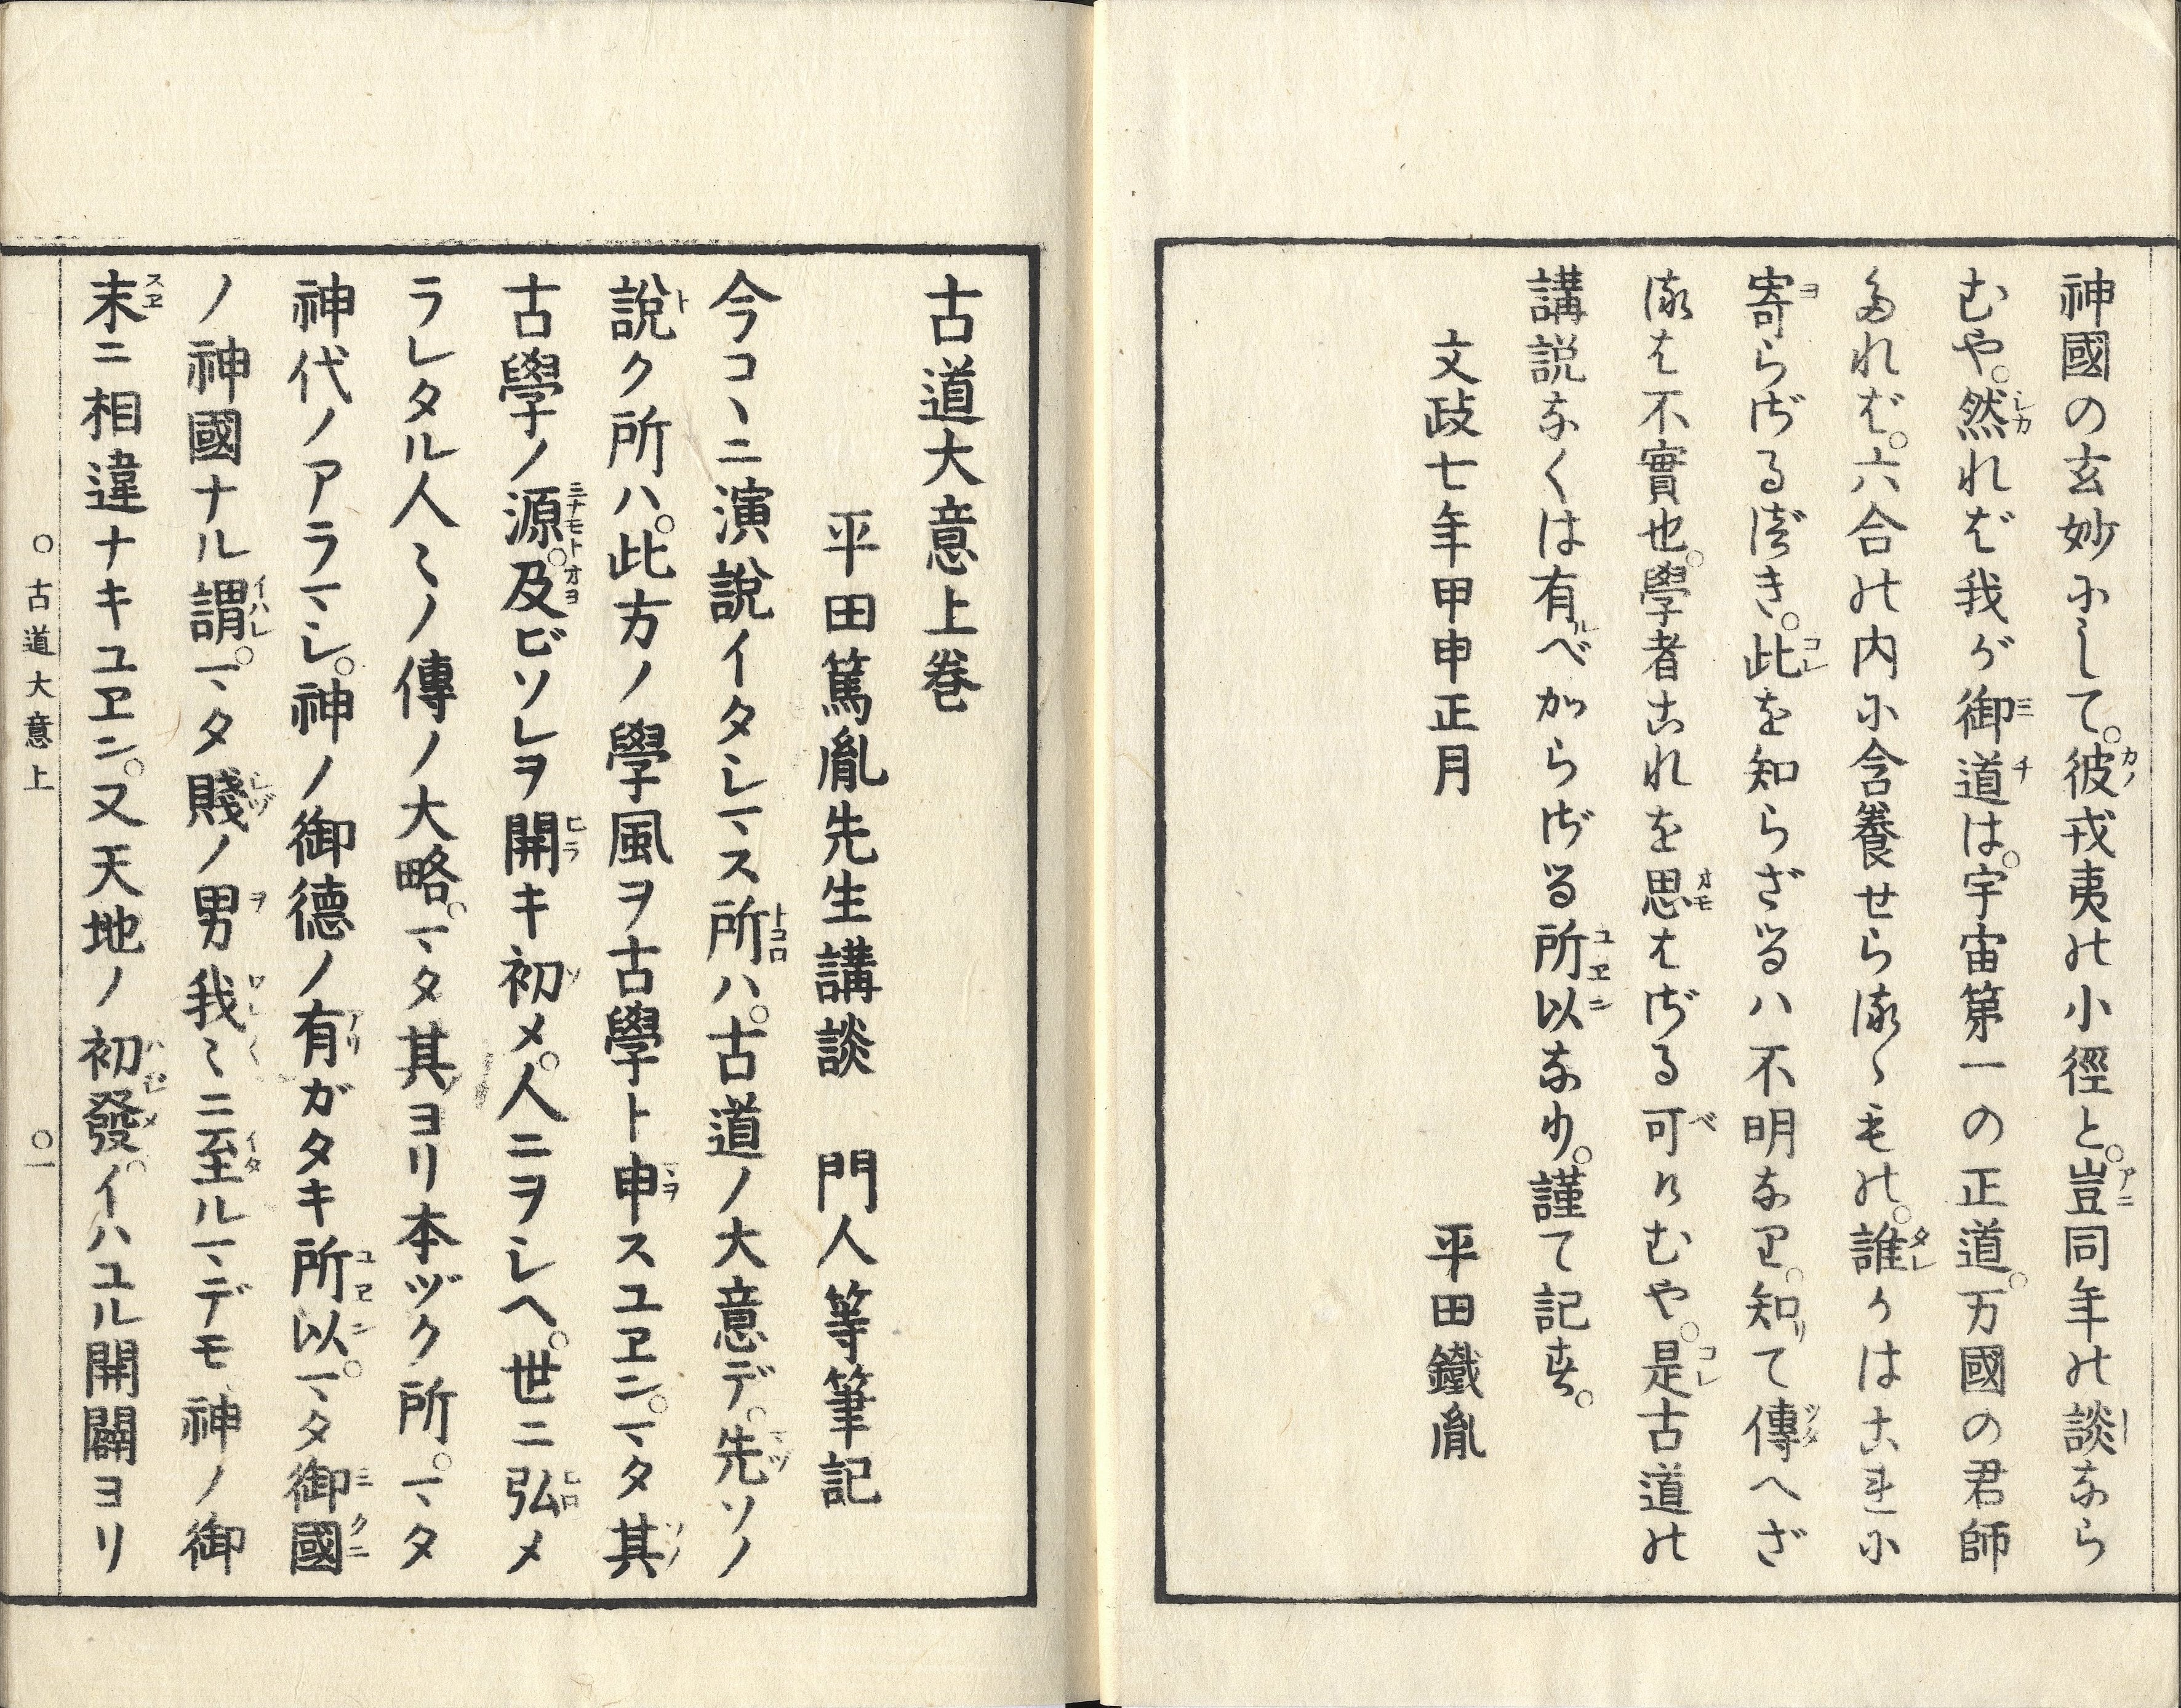 神國の玄妙にして。彼戎夷の小徑と。豈同年の談なら
むや。然れば我が御道は。宇宙第一の正道。万國の君師
たれば。六合の内に含養せらるゝもの。誰かはこれに
寄らざるべき。此を知らざるハ不明なり。知て傳へざ
るは不實也。學者これを思はざる可けむや。是古道の
講説なくは有べからざる所以なり。謹て記す。
文政七年甲申正月　平田鐵胤
古道大意上巻
平田篤胤先生講談　門人等筆記
今コヽニ演說イタシマス所ハ。古道ノ大意デ。先ソノ
說ク所ハ。此方ノ學風ヲ古學ト申スユヱニ。マタ其
古學ノ源。及ビソレヲ開キ初メ。人ニヲシヘ。世ニ弘メ
ラレタル人〻ノ傳ノ大略。マタ其ヨリ本ヅク所。マタ
神代ノアラマシ。神ノ御德ノ有ガタキ所以。マタ御國
ノ神國ナル謂。マタ賤ノ男我〻ニ至ルマデモ神ノ御
末ニ相違ナキユヱニ。又天地ノ初發。イハユル開闢ヨリ
○古道大意上　○一